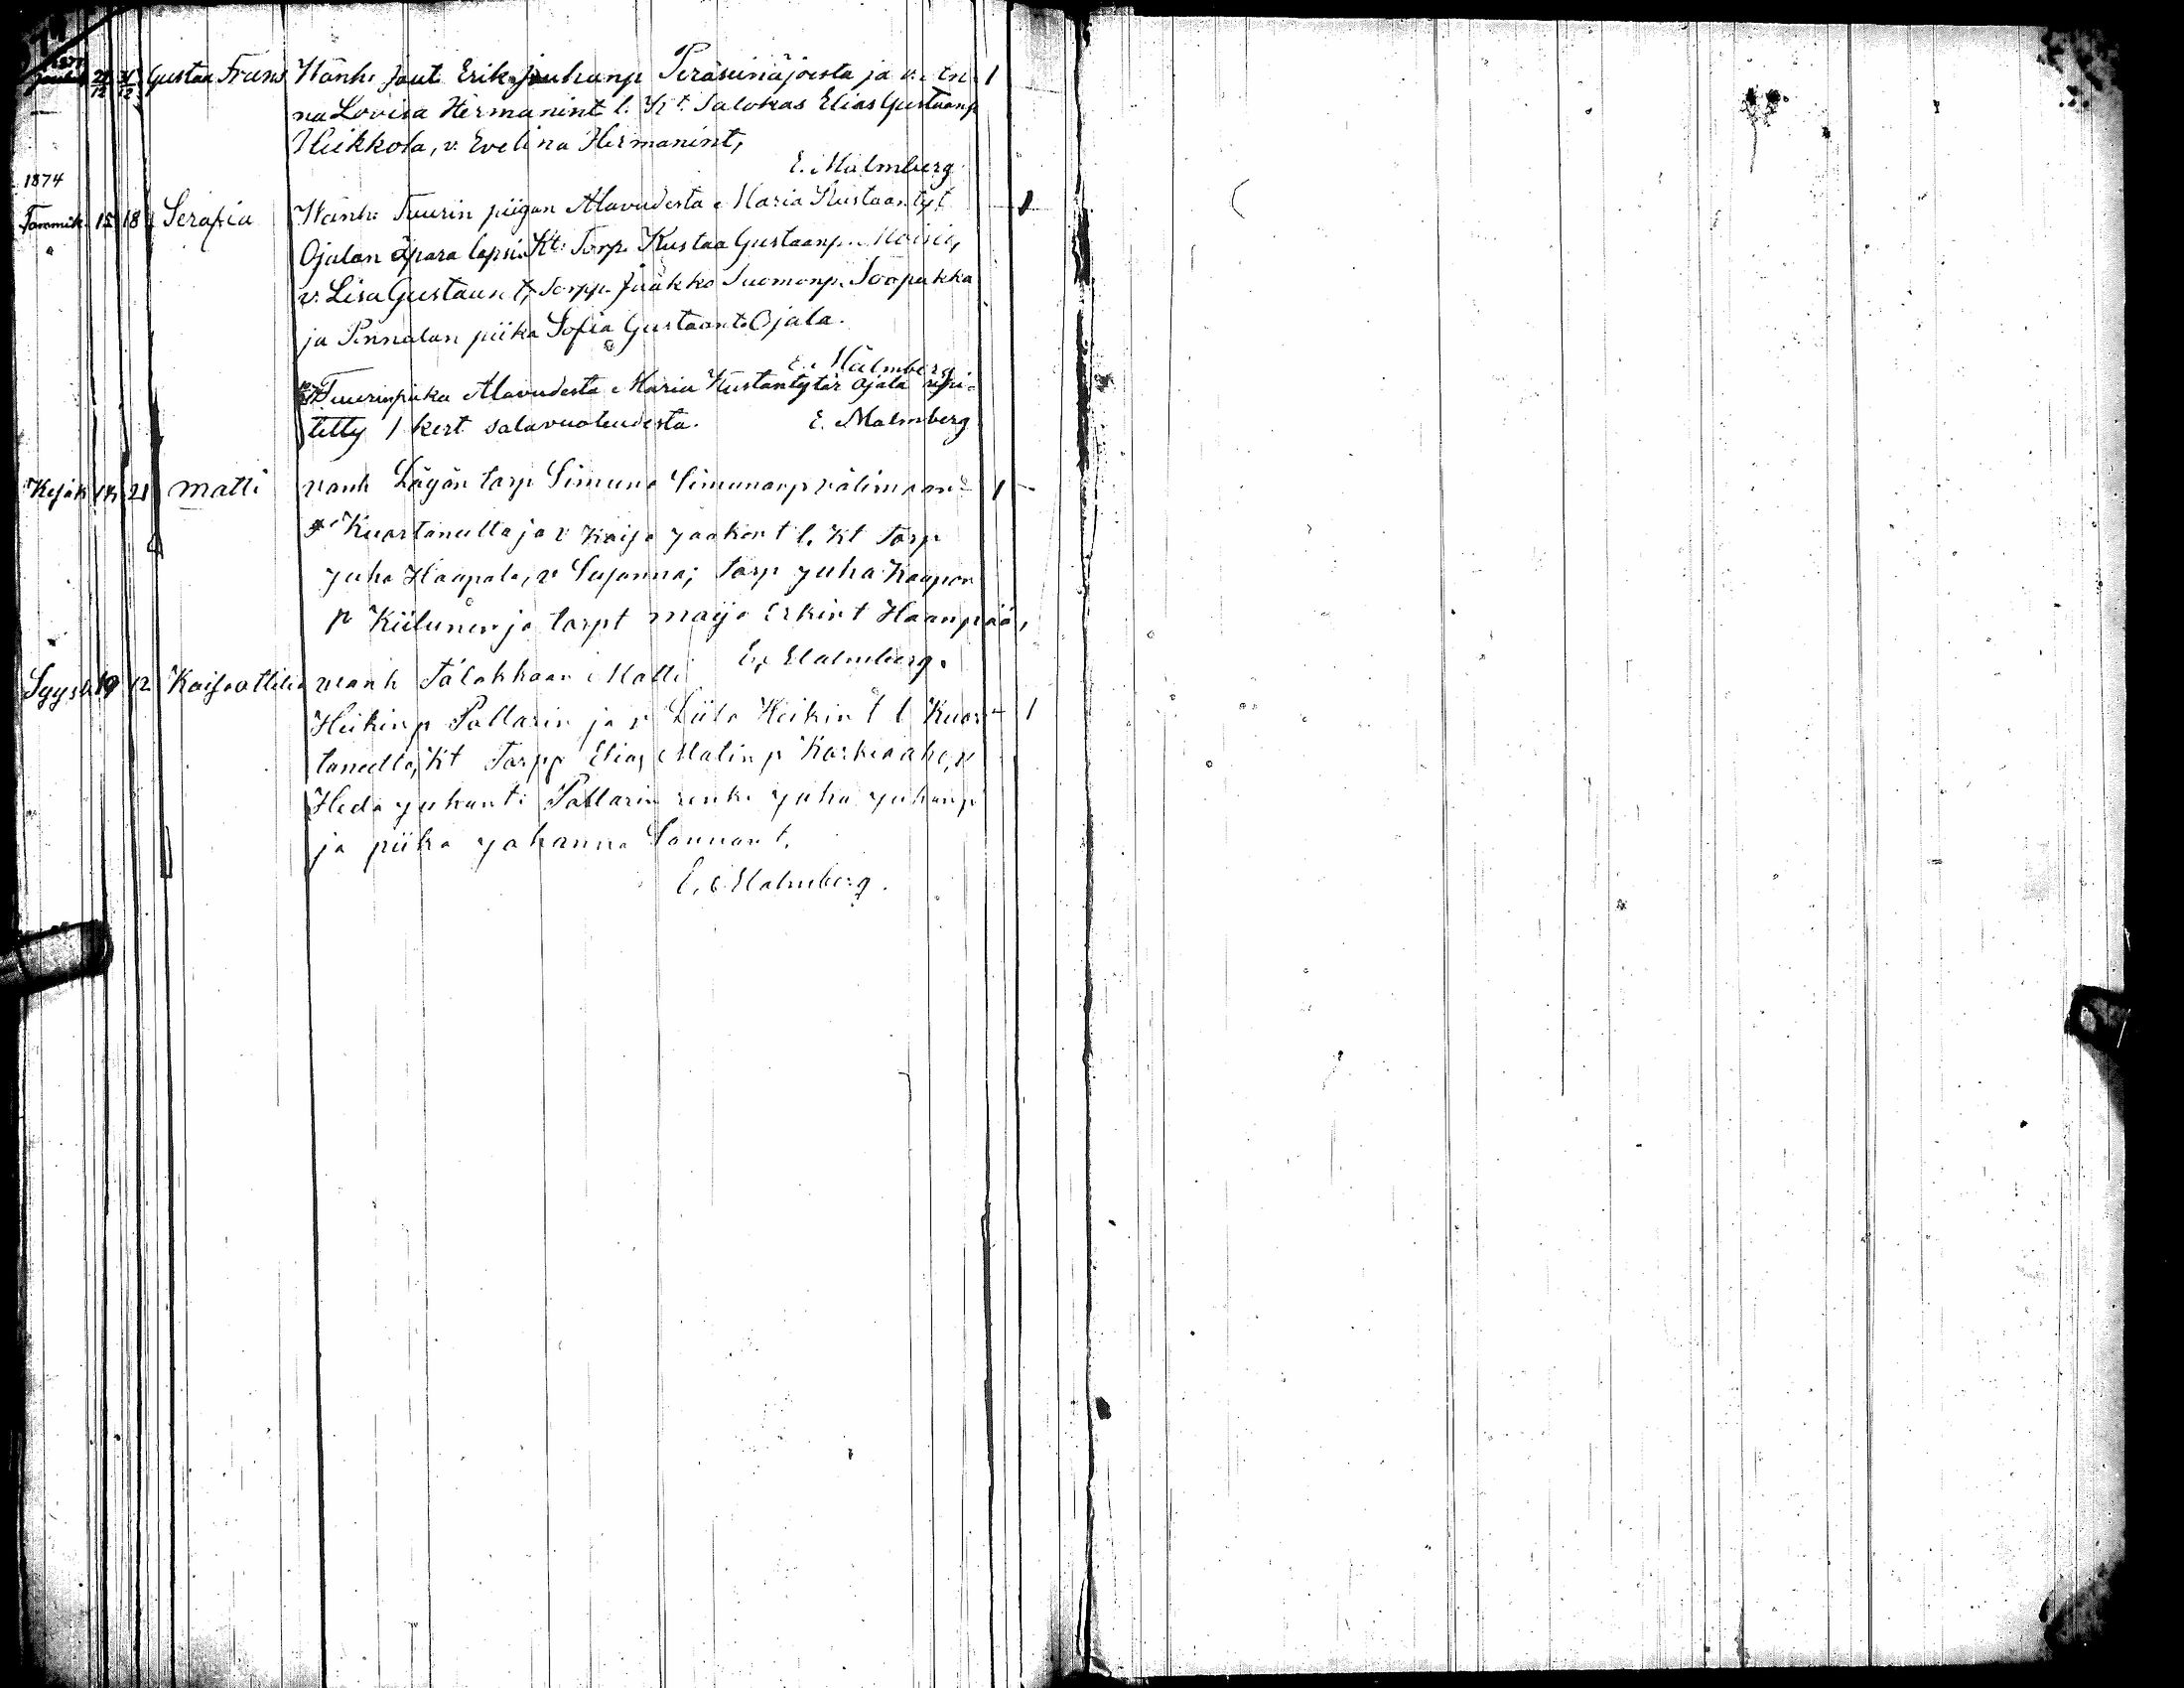 Gustaa Frans Wanh: Erik Juhanp Peräseinäjoesta ja v: An- 1
na Lovisa Hermanint l. Kt. Salokas Elias Gustaanp
Heikkola, v. Evelina Hermanint,
E. Malmberg
1874
Tammik. 15 18 Serafia Wanh: Tuurin piigan Alavudesta Maria Kustaantyt 1
Ojalan äpärä lapsi. Kt: Torp. Kustaa Gustaanp.
v. Lisa Gustaant, Torpp. Jaakko Tuomonp. Soopakka
ja Pinnalan piika Sofia Gustaant Ojala.
E. Malmberg
Tuurinpiika Alavudesta Maria Kustantytär Ojala ripi-
tetty 1 kert salavuoteudesta. E. Malmberg
Kesäk 14 21 Matti vanh torp Simuna Simunanp 1
Kuortaneelta ja v Kaisa Jaakont l. Kt Torp
Juha Haapala, v Susanna; torp Juha Kaapon
p Kiilunen ja torpt Maija Erkint Haanpää,
E. Malmberg.
Syysk 19 12 Kaisa ottilia vanh Matti
Heikinp Pallarin ja v Liisa Heikint l Kuor- 1
taneelta, Kt Torpp Elias Matinp Korkeaaho, v
Heda Juhant: Pallarin renki Juha Juhanp
ja piika Johanna
E. Malmberg.